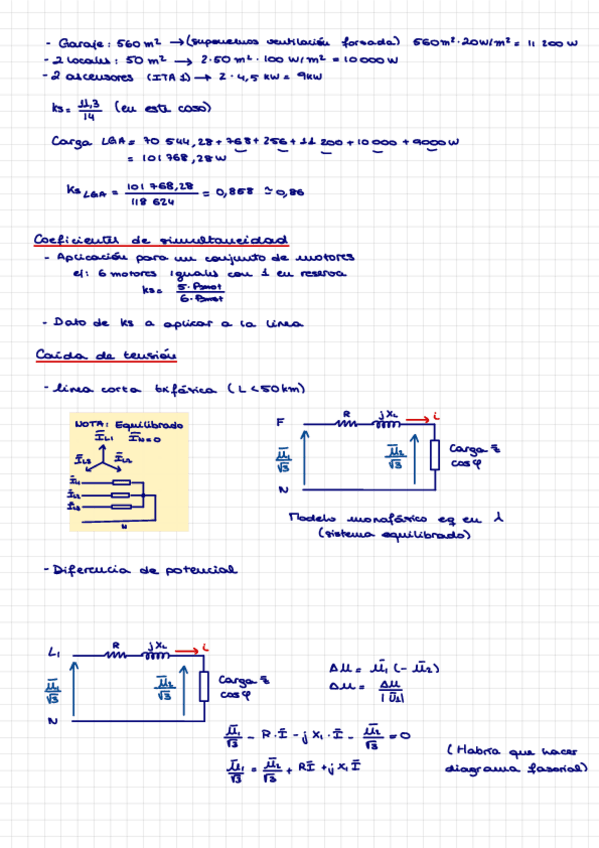 - Garaje: 560 m² → (suponemos ventilación forzada) 560m²·20W/m² = 11 200 W
- 2 locales: 50 m² → 2·50 m²·100 W/m² = 10 000 W
- 2 ascensores (ITA 1) → 2·4,5 kW = 9kW
ks = 11,3/14 (en este caso)
Carga LGA = 70 544,28 + 768 + 256 + 11 200 + 10 000 + 9000 W
= 101 768,28 W
Ks LGA = 101 768,28/118 624 = 0,858 ≃ 0,86
Coeficientes de simultaneidad
- Aplicación para un conjunto de motores
ej: 6 motores iguales con 1 en reserva
ks = 5·Pmot/6·Pmot
- Dato de ks a aplicar a la línea
Caída de tensión
- línea corta trifásica (L < 50 km)
NOTA: Equilibrado
I̅L1 I̅N=0
I̅L3 I̅L2
I̅L1
I̅L2
I̅L3
N
F R jXL i
U̅1/√3 U̅2/√3 Carga z̅
cos φ
N
Modelo monofásico eq en λ
(sistema equilibrado)
- Diferencia de potencial
L1 R jXL i
U̅1/√3 U̅2/√3 Carga z̅
cos φ
N
ΔU = U̅1 (- U̅2)
ΔU = ΔU/|U̅2|
U̅1/√3 - R·I̅ - jX1·I̅ - U̅2/√3 = 0
U̅1/√3 = U̅2/√3 + RI̅ + jX1I̅
(Habría que hacer
diagrama fasorial)